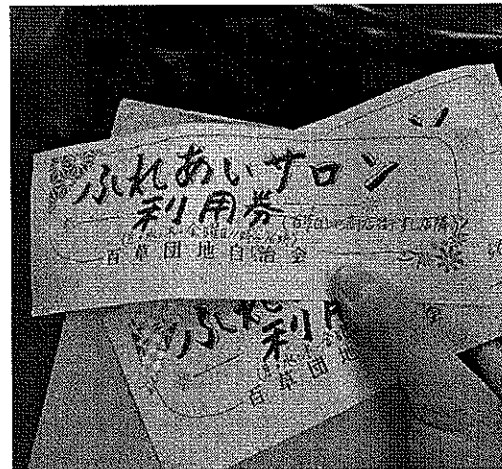 ふれあいサロン
利用券
百草団地自治会
ン
ふれ
利用
百草団地